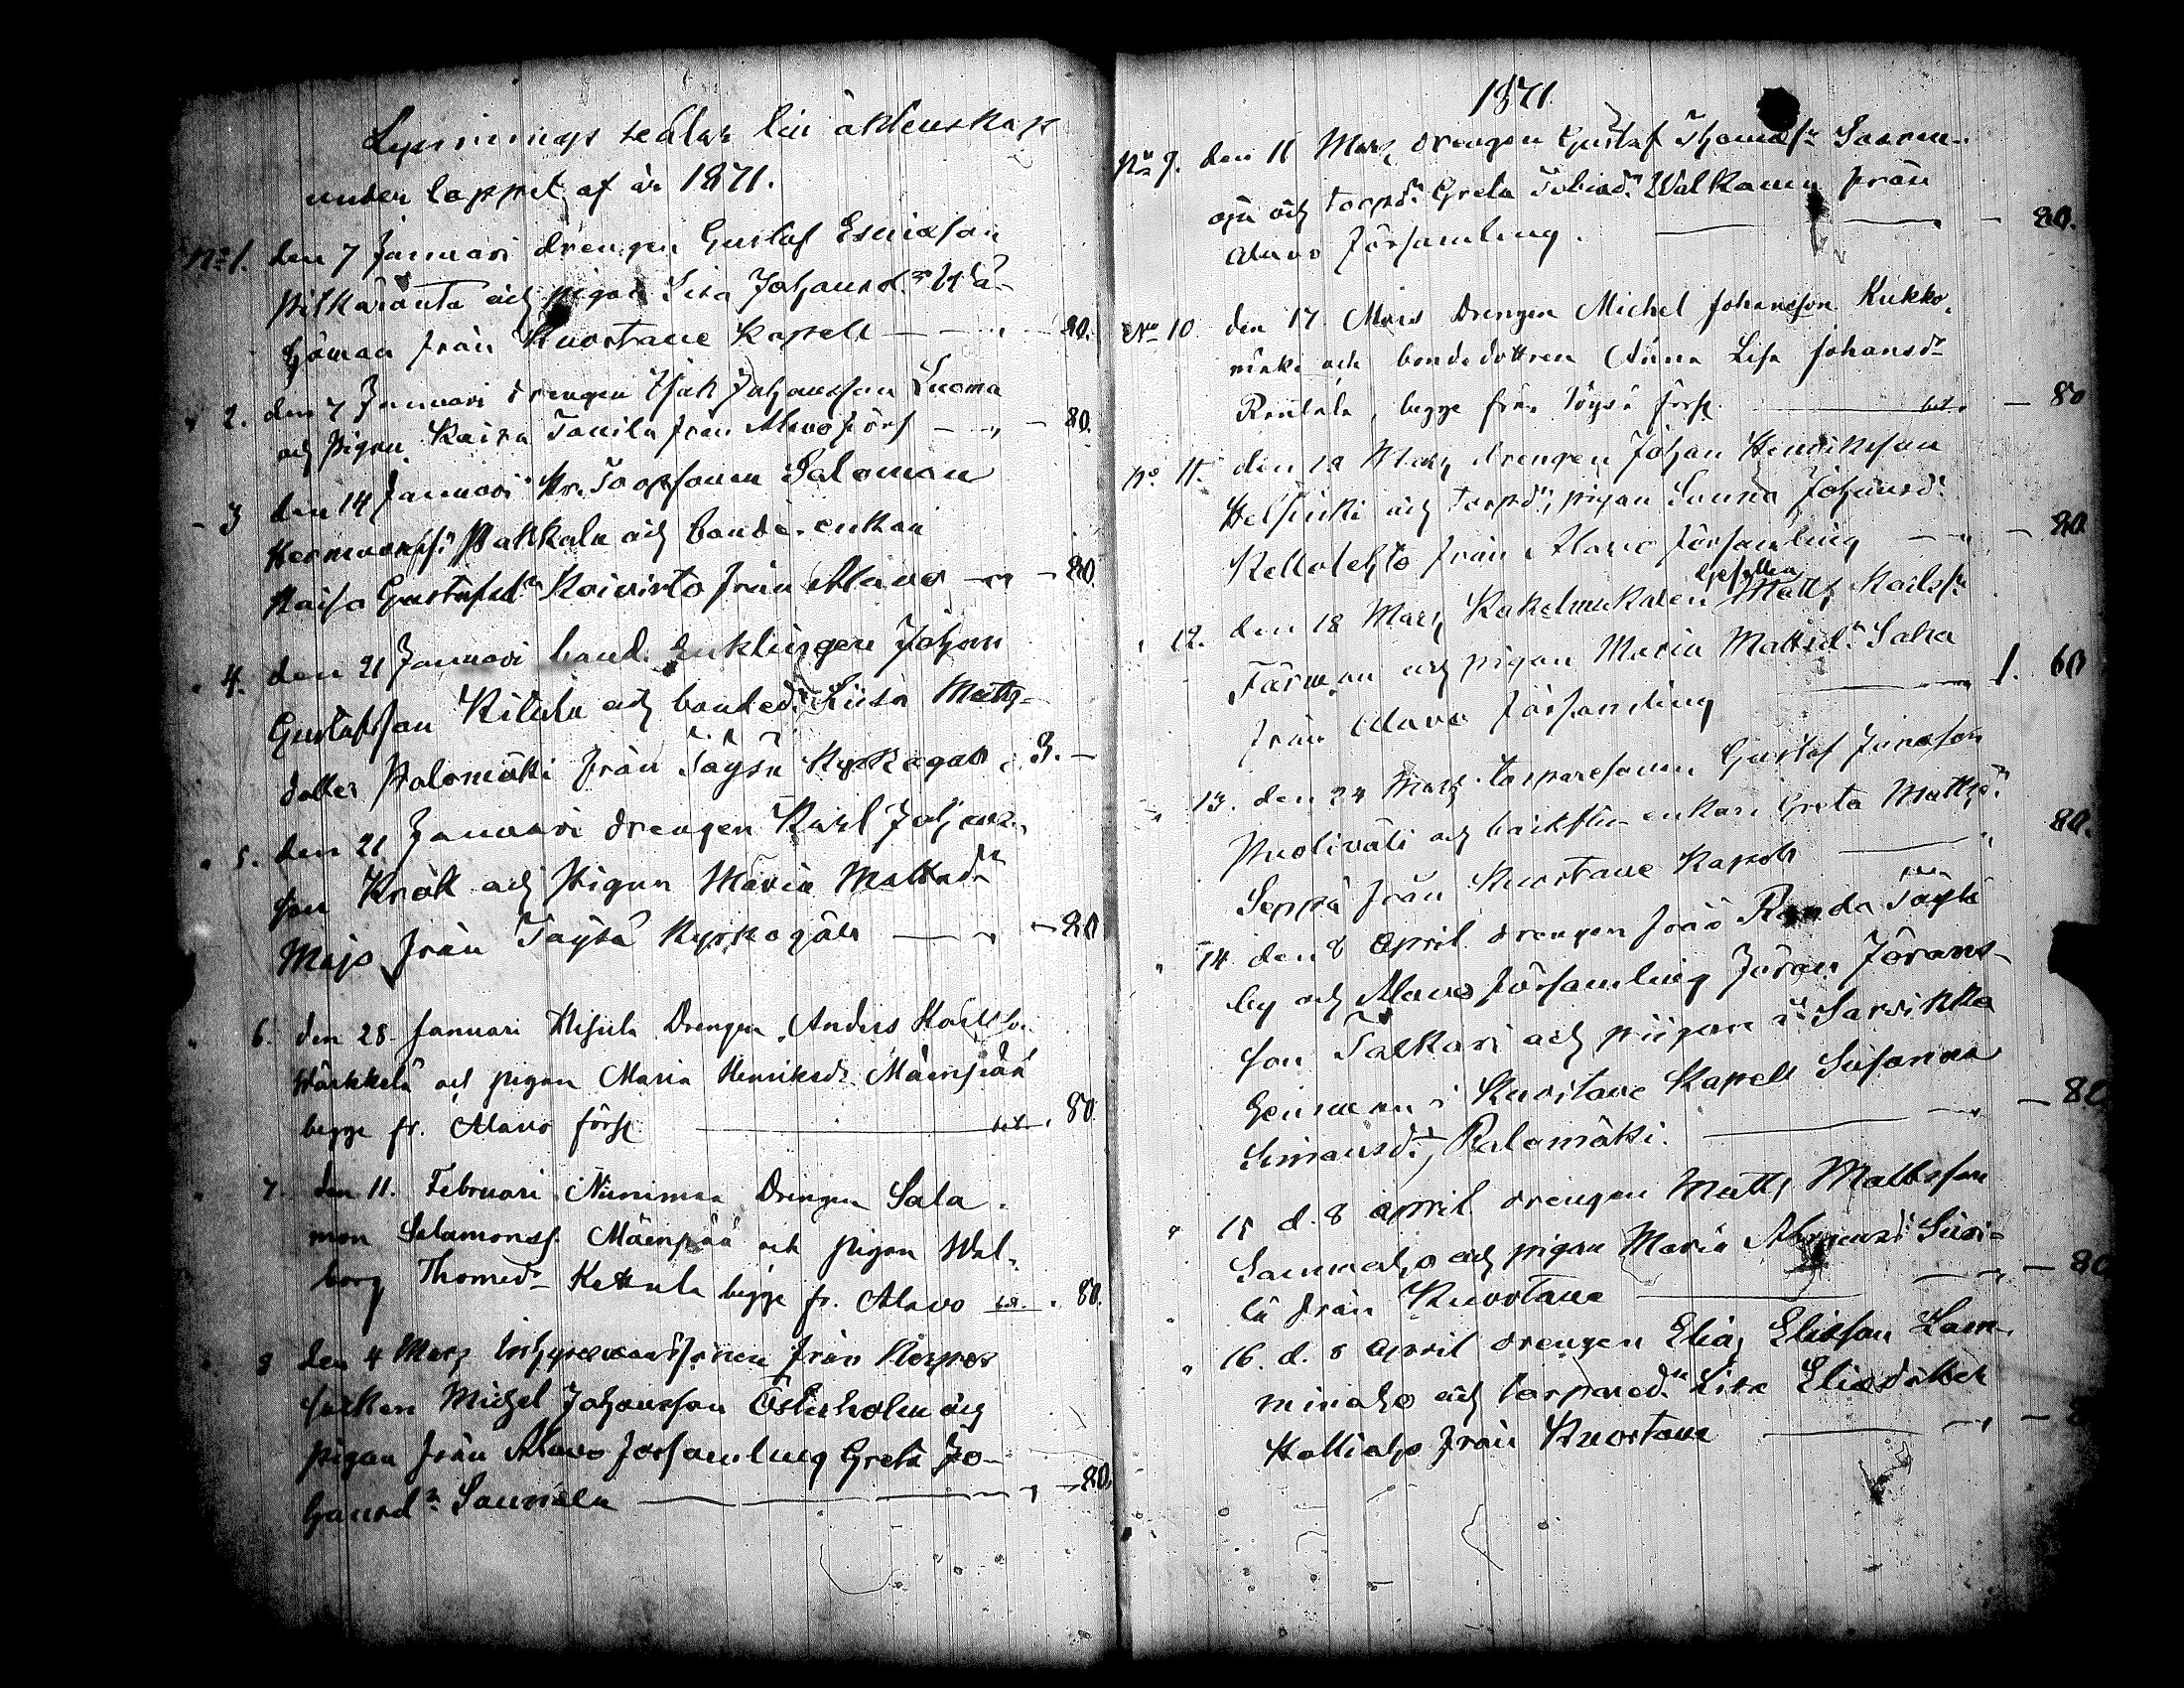 Lysnings sedlar till äktenskap
under loppet af år 1871.
No 1. den 7 Januari drengen Gustaf Esaiasson
Pitkäranta och pigan Lisa Johansd:r
från Kuortane Kapell — „ — 80.
„ 2. den 7 Januari drengen Isak Johansson Luoma
och Pigan Kaisa Tanila från Alavo förs — „ — 80.
- 3 den 14 Januari Salomon
Hermanss: Pakkala och bonde-enkan
Kaisa Gustafsd:r Koivisto från Alavo — „ — 80.
„ 4. den 21 Januari bond. Enklingen Johan
Gustafsson Ritala och bonded:r Liisa Matts-
dotter Palomäki från Töysä 3. —
„ 5. den 21 Januari drengen Karl Johans-
son Krook och Pigan Maria Mattsd:r
Majs från Töysä — „ — 80
„ 6. den 28. Januari Drengen Anders Karlsson
Härkkelä och pigan Maria Henriksdr Mäenpää
begge fr. Alavo förs. bet. „ 80
„ 7. den 11. Februari Niinimaa Drengen Salo-
mon Salamonss. Mäenpää och pigan Wal-
borg Thomasdr Kettula begge fr. Alavo bet. „ 80.
„ 8 den 4 Mars från
Michel Johansson Österholm och
pigan från Alavo församling Greta Jo-
hansd:r Saunala — „ — 80.
1871.
No 9. den 11 Mars drengen Gustaf Thomass:n Saaren-
oja och torpd:r Greta Tobiasd:r Walkama från
Alavo församling. — 80.
No 10 den 17 Mars Drengen Michel Johansson Kukko-
mäki och bondedottren Anna Lisa Johansdr
Rantala, begge från Töysä förs. bet. — 80
No 11. den 18 Mars drengen Johan Henriksson
Helsinki och torpd:r, pigan Sanna Johansd:r
Kellolehto från Alavo församling — „ — 80
„ 12. den 18 Mars Kakelmakaregesällen Matts Karlss:n
Färm och pigan Maria Mattsd:r Saha
från Alavo församling „ 1. 60
„ 13. den 24 Mars torparesonen Gustaf Jonasson
Puoliväli och backstu-enkan Greta Mattsd:r
Seppä från Kuortane Kapell „ 80.
„ 14 den 8 April drengen från Töysä
by och Alavo församling Jöran Jörans-
son Talkari och pigan i Sarvikka
hemman i Kuortane Kapell Susanna
Simonsd:r, Palomäki. „ — 80
„ 15 d. 8 April drengen Matts Mattsson
Sammaho och pigan Maria Siiri-
lä från Kuortane „ — 80
„ 16. d. 8 April drengen Elias Eliasson Lam-
minaho och torpared:r Lisa Eliasdotter
Kalliaho från Kuortane „ — 8